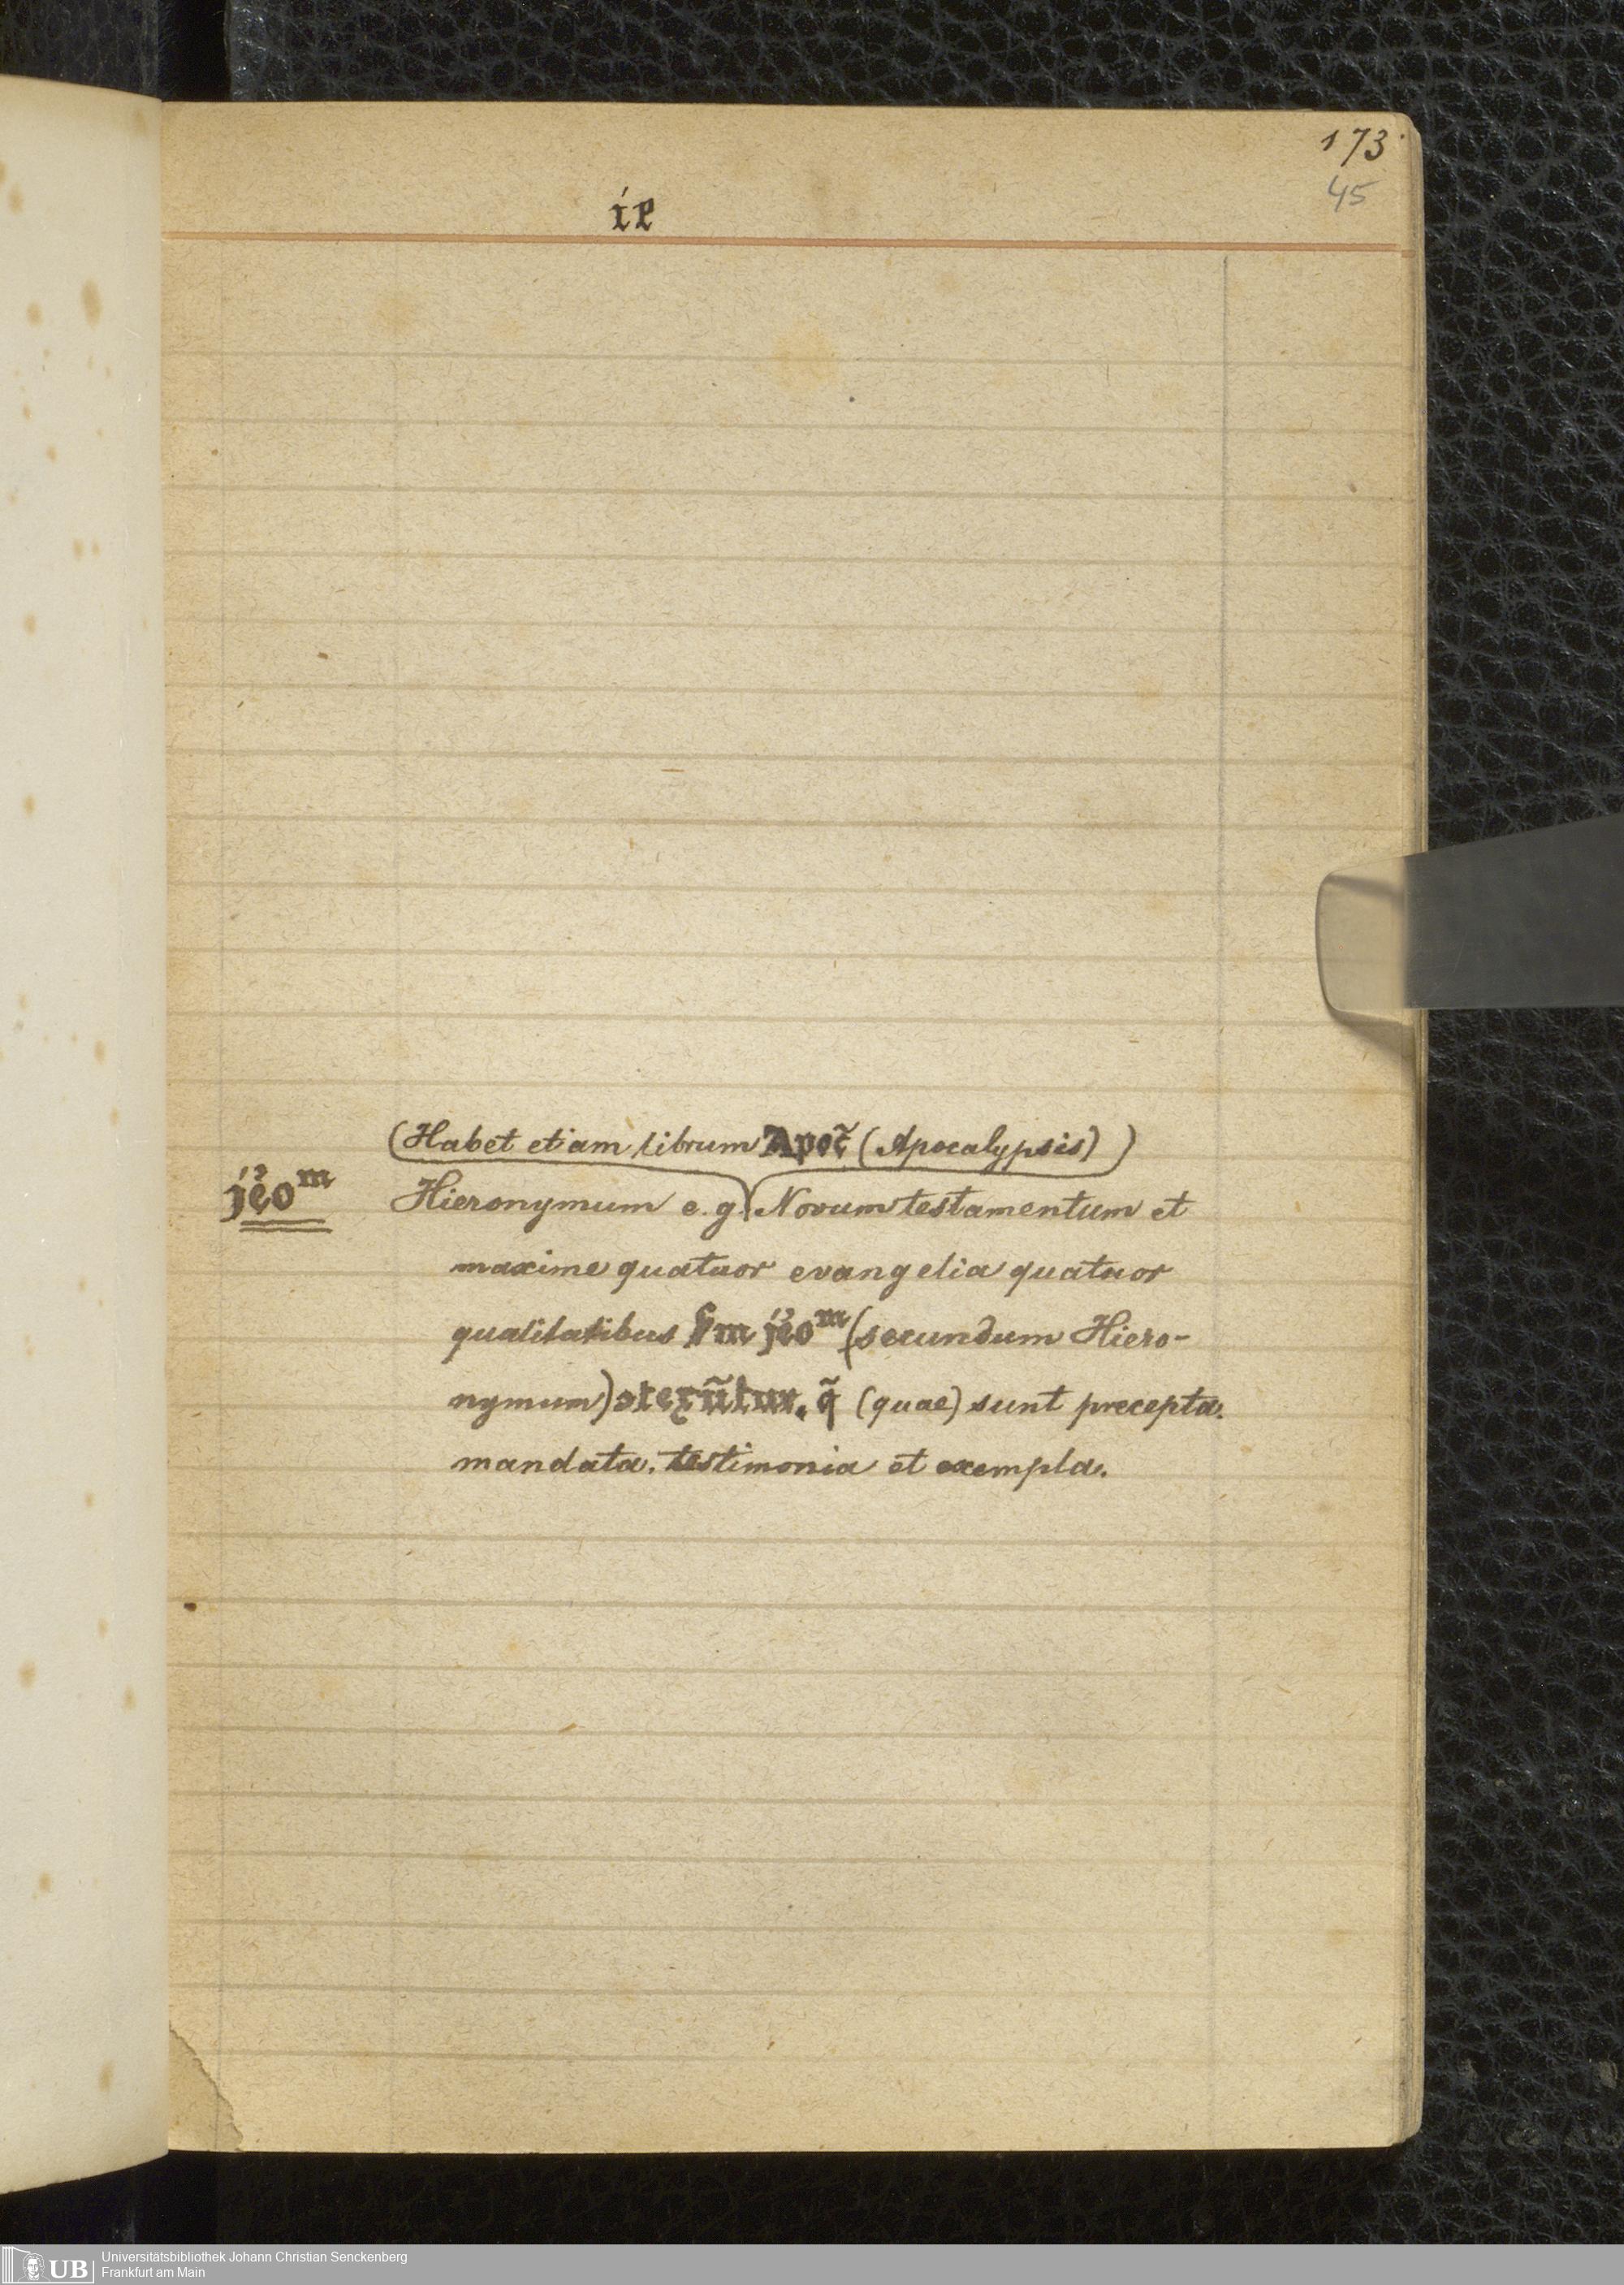 173.
45
ie
(Habet etiam librum Apoc̃ (Apocalypsis))
jẽoᵐ Hieronymum e. g. Novum testamentum et
maxime quatuor evangelia quatuor
qualitatibus jẽoᵐ (secundum Hiero-
nymum) q̃ (quae) sunt precepta.
mandata. testimonia et exempla.
Universitätsbibliothek Johann Christian Senckenberg
UB Frankfurt am Main